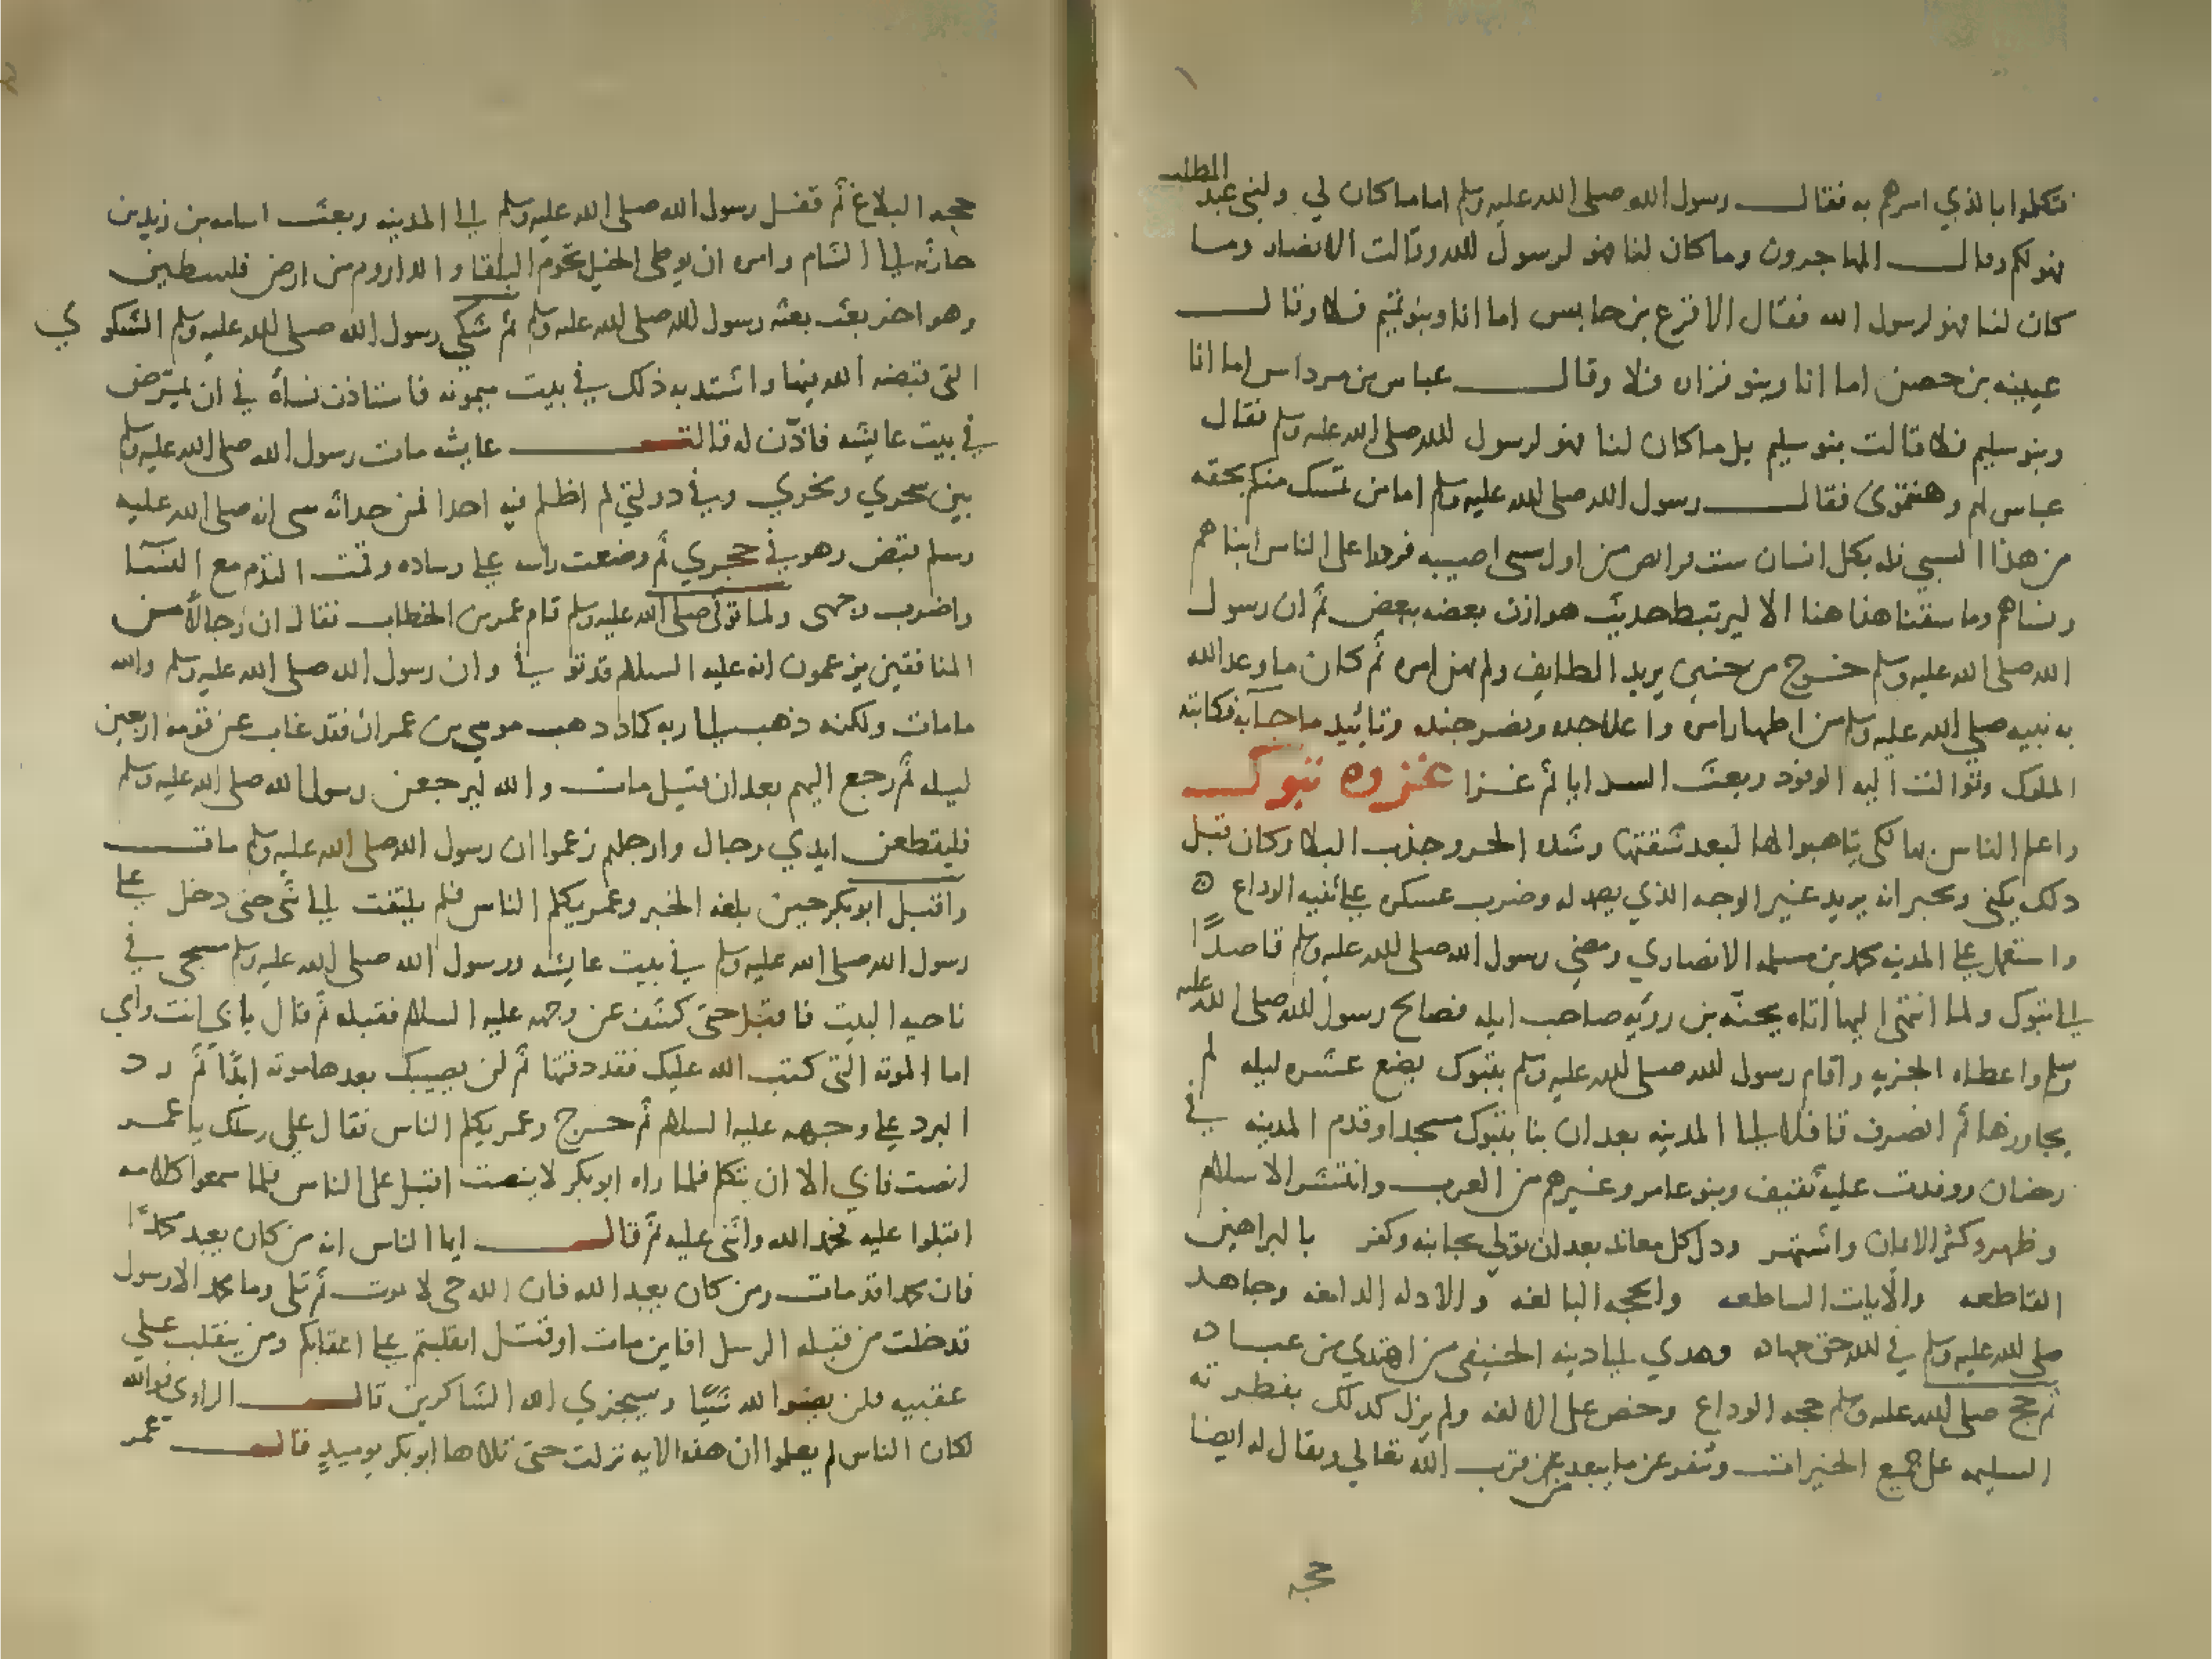 فتكلموا بالذي امرهم به فقال رسول الله صلى الله عليه وسلم اما ما كان لي ولبني عبد المطلب
فهو لكم وقال المهاجرون وما كان لنا فهو لرسول الله وقالت الانصار وما
كان لنا فهو لرسول الله فقال الاقرع بن حابس اما انا وبنو تميم فلا وقال
عيينه بن حصن اما انا وبنو فزاره فلا وقال عباس بن مرداس اما انا
وبنو سليم فلا قالت بنو سليم بل ما كان لنا فهو لرسول الله صلى الله عليه وسلم فقال
عباس لهم وهنتموني فقال رسول الله صلى الله عليه وسلم اما من تمسك منكم بحقه
من هذا السبي فله بكل انسان ست فرايض من اول سبي اصيبه فردوا على الناس ابناهم
ونساهم وما سقنا هذا هنا الا ليرتبط حديث هوازن بعضه ببعض ثم ان رسول
الله صلى الله عليه وسلم خرج من حنين يريد الطايف ولم يهن امره ثم كان ما وعد الله
به نبيه صلى الله عليه وسلم من اظهار امره واعلا جده ونصر جنده وتاييد ما جآ به فكاتبه
الملوك وتوالت اليه الوفود وبعث السرايا ثم غزا غزوه تبوك
واعلم الناس بها لكي يتاهبوا لها لبعد شقتها وشده الحر وجذب البلاد وكان قبل
ذلك يكني ويخبر انه يريد غير الوجه الذي يصمد له وضرب عسكره على ثنيه الوداع
واستعمل على المدينه محمد بن مسلمه الانصاري ومضى رسول الله صلى الله عليه وسلم قاصدًا
الى تبوك ولما انتهى اليها اتاه يحنّه بن روبه صاحب ايله فصالح رسول الله صلى الله عليه
وسلم واعطاه الجزيه واقام رسول الله صلى الله عليه وسلم بتبوك بضع عشره ليله لم
يجاوزها ثم انصرف قافلا الى المدينه بعد ان بنا بتبوك مسجدا وقدم المدينه في
رمضان ووفدت عليه ثقيف وبنو عامر وغيرهم من العرب وانتشر الاسلام
وظهر وكثر الايمان واشتهر وذل كل معاند بعد ان تولى بجانبه وكفر بالبراهين
القاطعه والآيات الساطعه والحجه البالغه والادله الدامغه وجاهد
صلى الله عليه وسلم في الله حق جهاده وهدي الى دينه الحنيفي من اهتدي من عباده
ثم حج صلى الله عليه وسلم حجه الوداع وحض على الالفه ولم يزل كذلك بفطرته
السليمه على جميع الخيرات وينفر عن ما يبعد عن قرب الله تعالى ويقال له ايضا
حجه
حجه البلاغ ثم قفل رسول الله صلى الله عليه وسلم الى المدينه وبعث اسامه بن زيد بن
حارثه الى الشام وامره ان يوطي الخيل تخوم البلقا والداروم من ارض فلسطين
وهو اخر بعث بعثه رسول الله صلى الله عليه وسلم ثم شكي رسول الله صلى الله عليه وسلم الشكوي
التي قبضه الله فيها واشتد به ذلك في بيت ميمونه فاستاذن نسآه في ان يمرض
في بيت عايشه فاذّن له قالت عايشه مات رسول الله صلى الله عليه وسلم
بين سحري ونحري وفي دولتي لم اظلم فيه احدا فمن حداثه سني انه صلى الله عليه
وسلم قبض وهو في حجري ثم وضعت راسه على وساده وقمت التدم مع النسآ
واضرب وجهي ولما توفي صلى الله عليه وسلم قام عمر بن الخطاب فقال ان رجالا من
المنافقين يزعمون انه عليه السلام قد توفي وان رسول الله صلى الله عليه وسلم والله
ما مات ولكنه ذهب الى ربه كما ذهب موسي بن عمران فقد غاب عن قومه اربعين
ليله ثم رجع اليهم بعد ان قيل مات والله ليرجعن رسول الله صلى الله عليه وسلم
فليقطعن ايدي رجال وارجلهم زعموا ان رسول الله صلى الله عليه وسلم مات
واقبل ابو بكر حين بلغه الخبر وعمر يكلم الناس فلم يلتفت الى شي حتى دخل على
رسول الله صلى الله عليه وسلم في بيت عايشه ورسول الله صلى الله عليه وسلم مسجى في
ناحيه البيت فاقبل حتى كشف عن وجهه عليه السلام فقبله ثم قال بابي انت وامي
اما الموته التي كتب الله عليك فقد ذقتها ثم لن يصيبك بعدها موته ابدًا ثم رد
البرد على وجهه عليه السلام ثم خرج وعمر يكلم الناس فقال على رسلك يا عمر
انصت فابي الا ان يتكلم فلما راه ابو بكر لا ينصت اقبل على الناس فلما سمعوا كلامه
اقبلوا عليه فحمد الله واثنى عليه ثم قال ايها الناس انه من كان يعبد محمدًا
فان محمدا قد مات ومن كان يعبد الله فان الله حي لا يموت ثم تلى وما محمد الا رسول
قد خلت من قبله الرسل افاين مات او قتل انقلبتم على اعقابكم ومن ينقلب على
عقبيه فلن يضر الله شيًا وسيجزي الله الشاكرين قال الراوي فوالله
لكان الناس لم يعلموا ان هذه الايه نزلت حتى تلاها ابو بكر يوميذٍ قال عمر